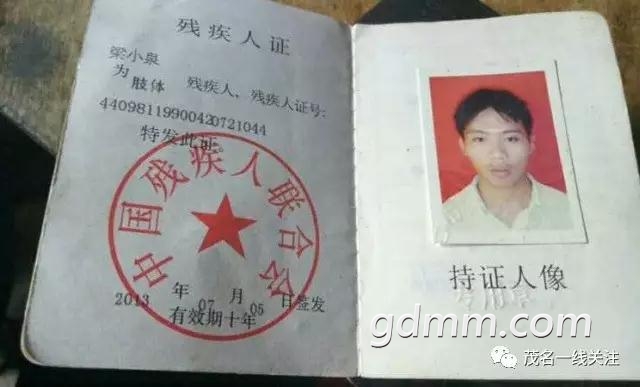 残疾人证
梁小泉
为 肢体 残疾人，残疾人证号：
44098119900420721044
特发此证
中国残疾人联合会
2013 年 07 月 05 日签发
有效期十年
持证人像
专用章
gdmm.com
茂名一线关注